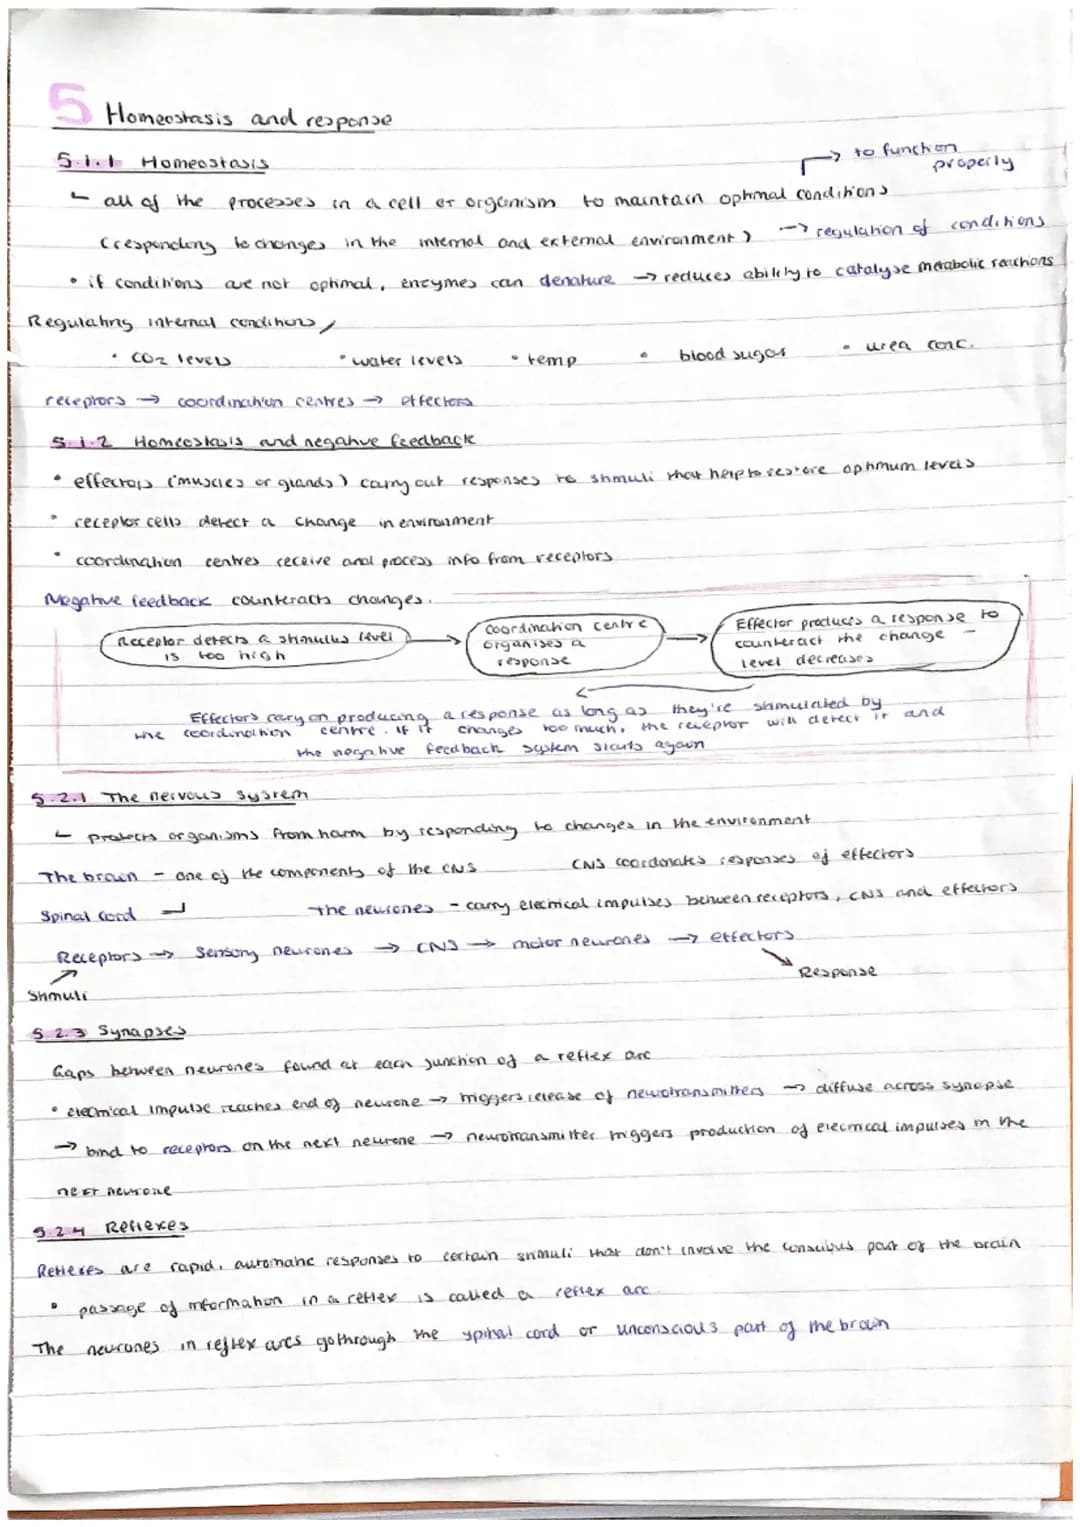 5 Homeostasis and response
5.1.1 Homeostasis
→ to function
properly
all of the processes in a cell or organism to maintain optimal conditions
(responding to changes in the internal and external environment) → regulation of conditions
• if conditions are not optimal, enzymes can denature → reduces ability to catalyse metabolic reactions
Regulating internal conditions
• CO2 levels • water levels • temp • blood sugar • urea conc.
receptors → coordination centres → effectors
5.1.2 Homeostasis and negative feedback
• effectors (muscles or glands) carry out responses to stimuli that help to restore optimum levels
• receptor cells detect a change in environment
• coordination centres receive and process info from receptors
Negative feedback counteracts changes.
Receptor detects a stimulus level
is too high
→
Coordination centre
organises a
response
→
Effector produces a response to
counteract the change –
level decreases
←
Effectors cary on producing a response as long as they're stimulated by
the coordination centre. If it changes too much, the receptor will detect it and
the negative feedback system starts again
5.2.1 The nervous system
protects organisms from harm by responding to changes in the environment
The brain – one of the components of the CNS CNS coordonates responses of effectors
Spinal cord The neurones – carry electrical impulses between receptors, CNS and effectors
Receptors → Sensory neurones → CNS → motor neurones → effectors
Response
Stimuli
5.2.3 Synapses
Gaps between neurones found at each junction of a reflex arc
• electrical impulse reaches end of neurone → triggers release of neurotransmitters → diffuse across synapse
→ bind to receptors on the next neurone → neurotransmitter triggers production of electrical impulses in the
next neurone
5.2.4 Reflexes
Reflexes are rapid, automatic responses to certain stimuli that don't involve the conscious part of the brain
• passage of information in a reflex is called a reflex arc
The neurones in reflex arcs go through the spinal cord or unconscious part of the brain